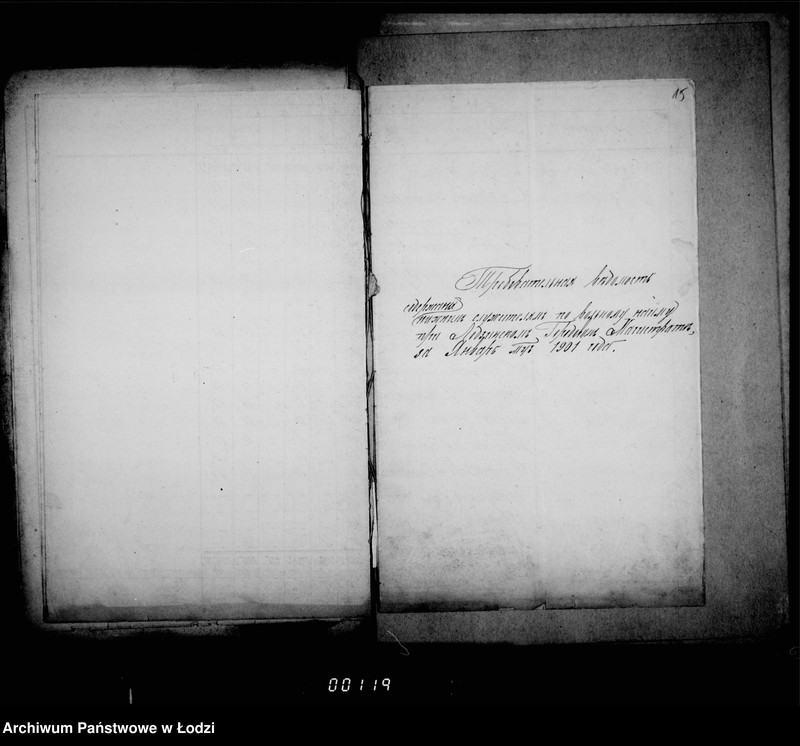 15
Требовательная ведомость
содержания
служителям по вольному найму
при Лодзинском Городском Магистрате,
за Январь м-ц 1901 года.
00119
Archiwum Państwowe w Łodzi